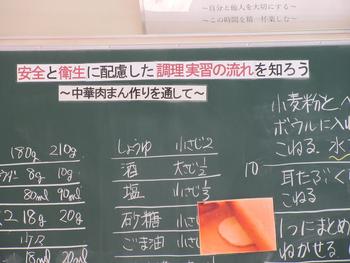 〜自分と他人を大切にする〜
〜この時間を精一杯楽しむ〜
安全と衛生に配慮した調理実習の流れを知ろう
〜中華肉まん作りを通して〜
180g 210g
8g 10g
80ml 90ml
18g 20g
15ml 20ml
しょうゆ 小さじ2
酒 大さじ1/2
塩 小さじ1/3
砂糖 小さじ
ごま油 小さじ
10
小麦粉と
ボウルに入
こねる。水
耳たぶく
こねる
1つにまとめ
ねかせる